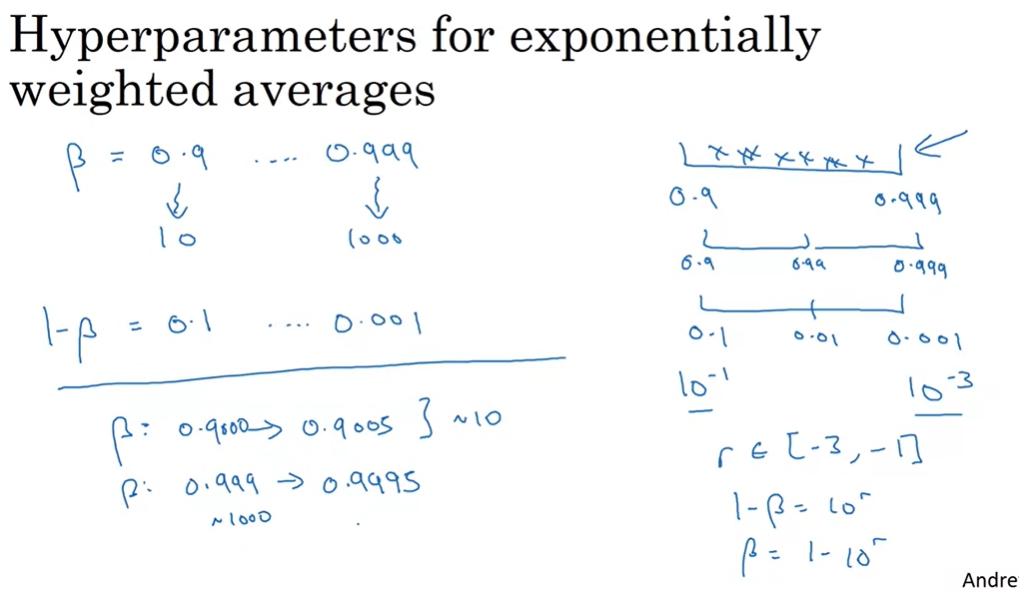 Hyperparameters for exponentially
weighted averages
β = 0.9 .... 0.999
10 1000
1-β = 0.1 .... 0.001
β: 0.9000 → 0.9005 } ~10
β: 0.999 → 0.9995
~1000
0.9 0.999
0.9 0.99 0.999
0.1 0.01 0.001
10⁻¹ 10⁻³
r ∈ [-3, -1]
1-β = 10ʳ
β = 1-10ʳ
Andre